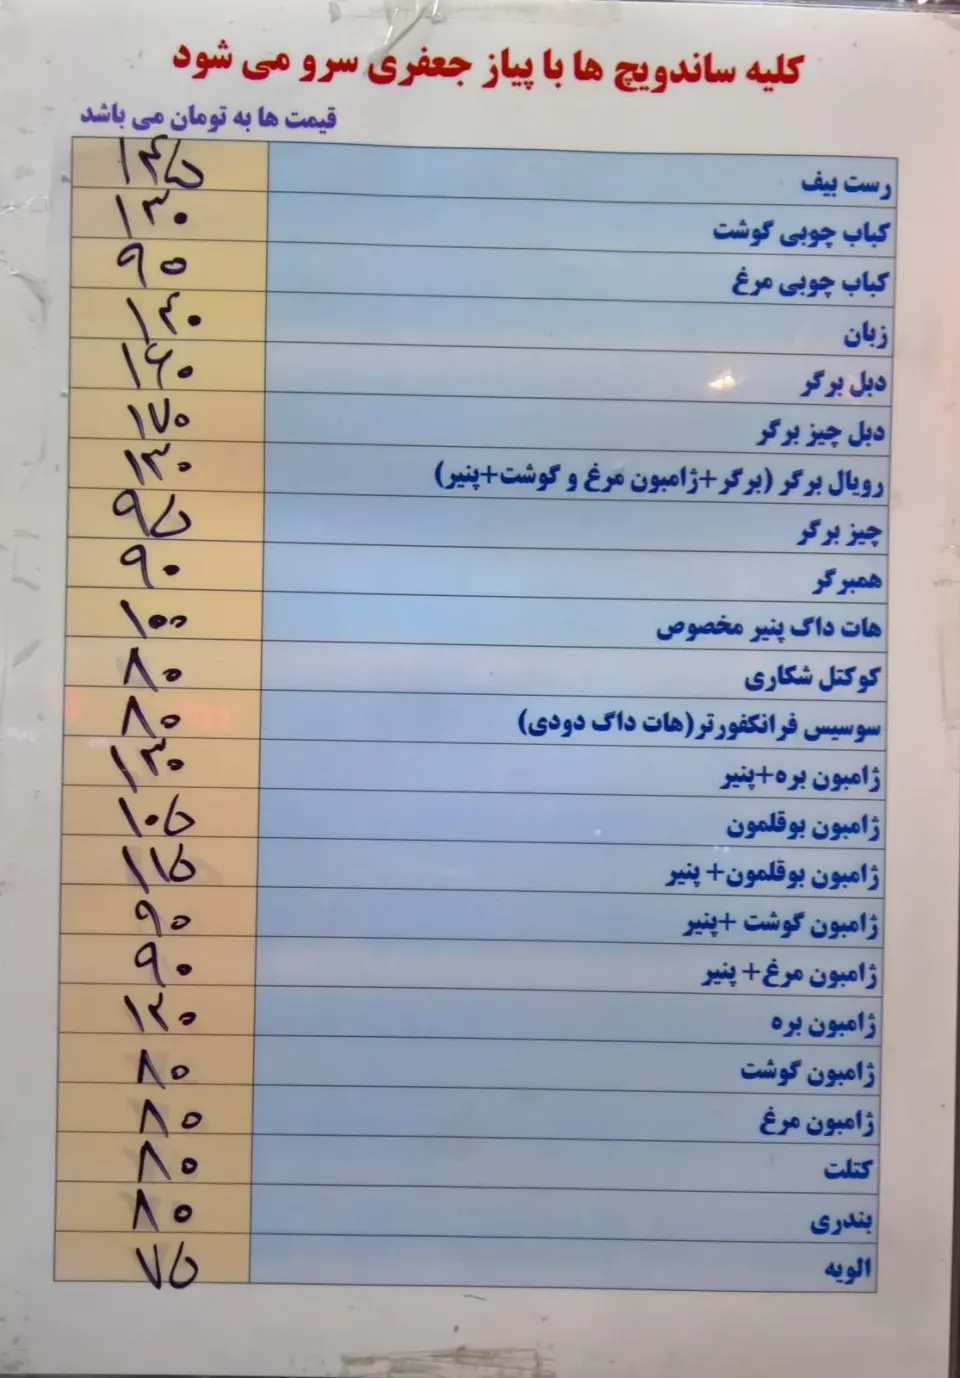 کلیه ساندویچ ها با پیاز جعفری سرو می شود
قیمت ها به تومان می باشد
رست بیف ۱۴۵
کباب چوبی گوشت ۱۳۰
کباب چوبی مرغ ۹۰
زبان ۱۴۰
دبل برگر ۱۶۰
دبل چیز برگر ۱۷۰
رویال برگر (برگر+ژامبون مرغ و گوشت+پنیر) ۱۳۰
چیز برگر ۹۵
همبرگر ۹۰
هات داگ پنیر مخصوص ۱۰۰
کوکتل شکاری ۸۰
سوسیس فرانکفورتر(هات داگ دودی) ۸۰
ژامبون بره+پنیر ۱۳۰
ژامبون بوقلمون ۱۰۵
ژامبون بوقلمون+ پنیر ۱۱۵
ژامبون گوشت +پنیر ۹۰
ژامبون مرغ+ پنیر ۹۰
ژامبون بره ۱۲۰
ژامبون گوشت ۸۰
ژامبون مرغ ۸۰
کتلت ۸۰
بندری ۸۰
الویه ۷۵